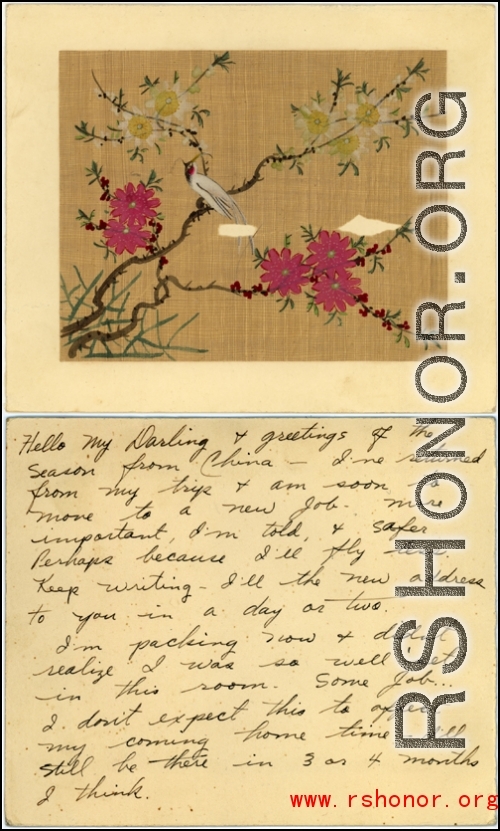 Hello my Darling & greetings of the
Season from China - I've returned
from my trip & am soon to
move to a new Job. More
important, I'm told, & safer
Perhaps because I'll fly
Keep writing - I'll the new address
to you in a day or two.
I'm packing now & didn't
realize I was so well set
in this room. Some Job...
I don't expect this to
my coming home time
still be there in 3 or 4 months
I think.
RSHONOR.ORG
www.rshonor.org